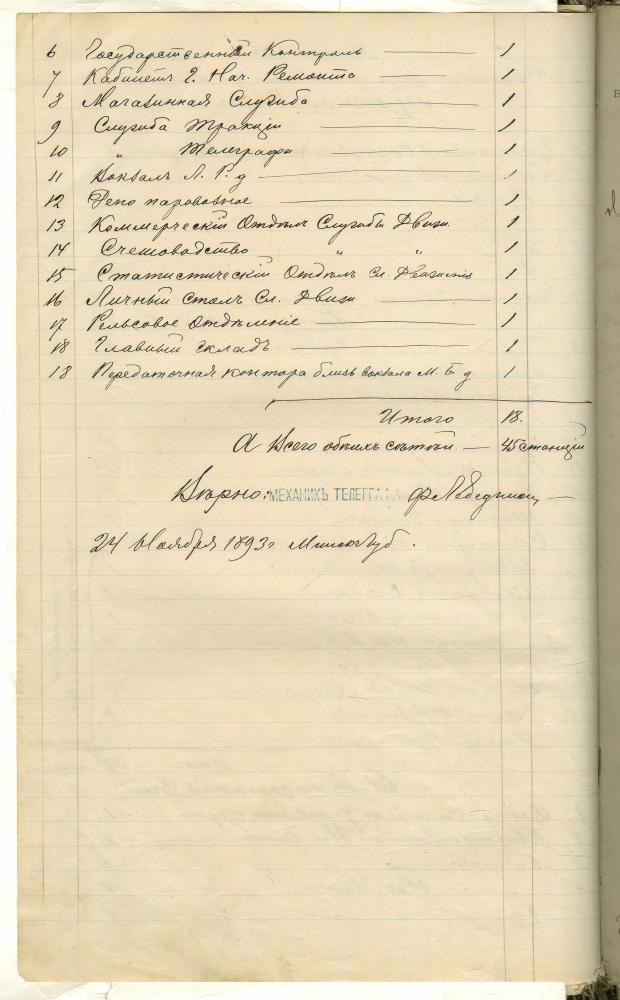 6 Государственный Контроль — 1
7 Кабинетъ г. Нач. Ремонта — 1
8 Магазинная Служба — 1
9 Служба Тракціи — 1
10 " Телеграфа — 1
11 Вокзалъ Л. Р. д — 1
12 Депо паровозное — 1
13 Коммерческій Отдѣлъ Службы Движ. 1
14 Счетоводство " " 1
15 Статистическій Отдѣлъ Сл. Движенія 1
16 Личный столъ Сл. Движ — 1
17 Рельсовое Отдѣленіе — 1
18 Главный складъ — 1
18 Передаточная контора близь вокзала М. Б. д 1
Итого 18.
А Всего обѣихъ сѣтей — 45 станцій
Вѣрно: МЕХАНИКЪ ТЕЛЕГРАФА
24 Ноября 1893 г. Минскъ губ.